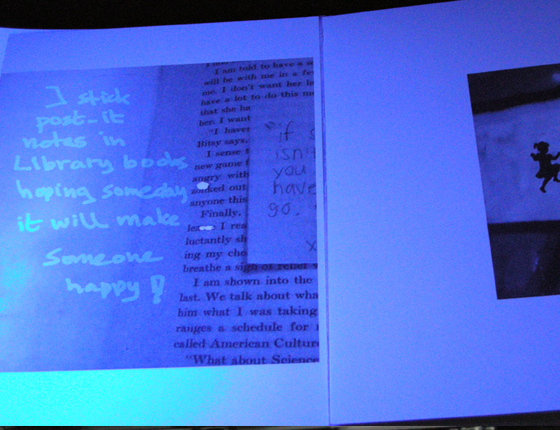 I stick
post-it
notes in
Library books
hoping someday
it will make
someone
happy!
I am told to have a
will be with me in a
me. I don't want her
have a lot to do this
that she
her. I want
"I have
Bitsy says.
I sense
new game
angry with
zonked out
anyone this
Finally,
I
luctantly
ing my
breathe a sigh of relief
I am shown into the
last. We talk about
him what I was taking
ranges a schedule for
called American
"What about Science
"if
isn't
you
have
go.
x